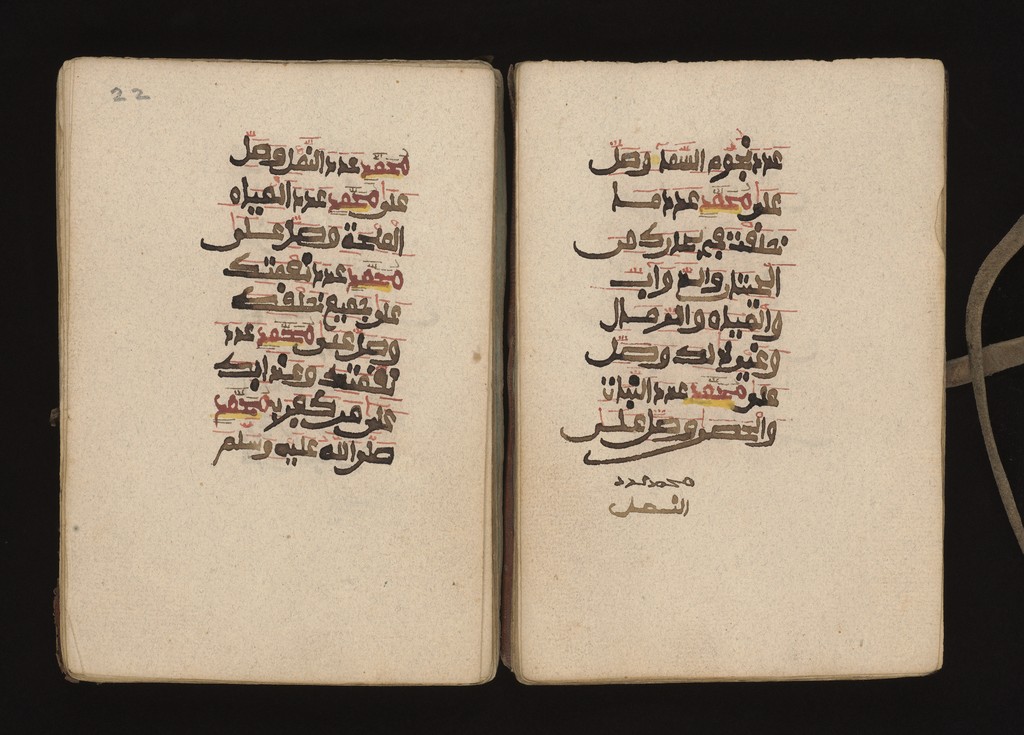 عدد نجوم السماء وصل
على محمد عدد ما
خلقت في بحارك من
الحيتان والدواب
والمياه والرمال
وغير ذلك وصل
على محمد عدد النبات
والحصى وصل على
محمد عدد
النمل
22
محمد عدد النمل وصل
على محمد عدد المياه
الملحة وصل على
محمد عدد نعمتك
على جميع خلقك
وصل على محمد عدد
نقمتك وعذابك
على من كفر بمحمد
صلى الله عليه وسلم